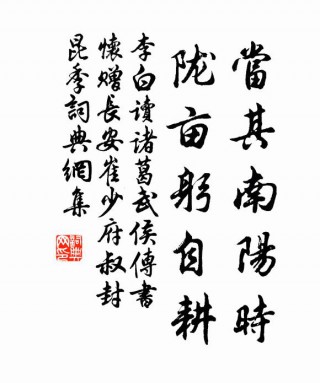 當其南陽時
陇亩躬自耕
李白讀諸葛武侯傳書
懷贈長安崔少府叔封
昆季詞典網集